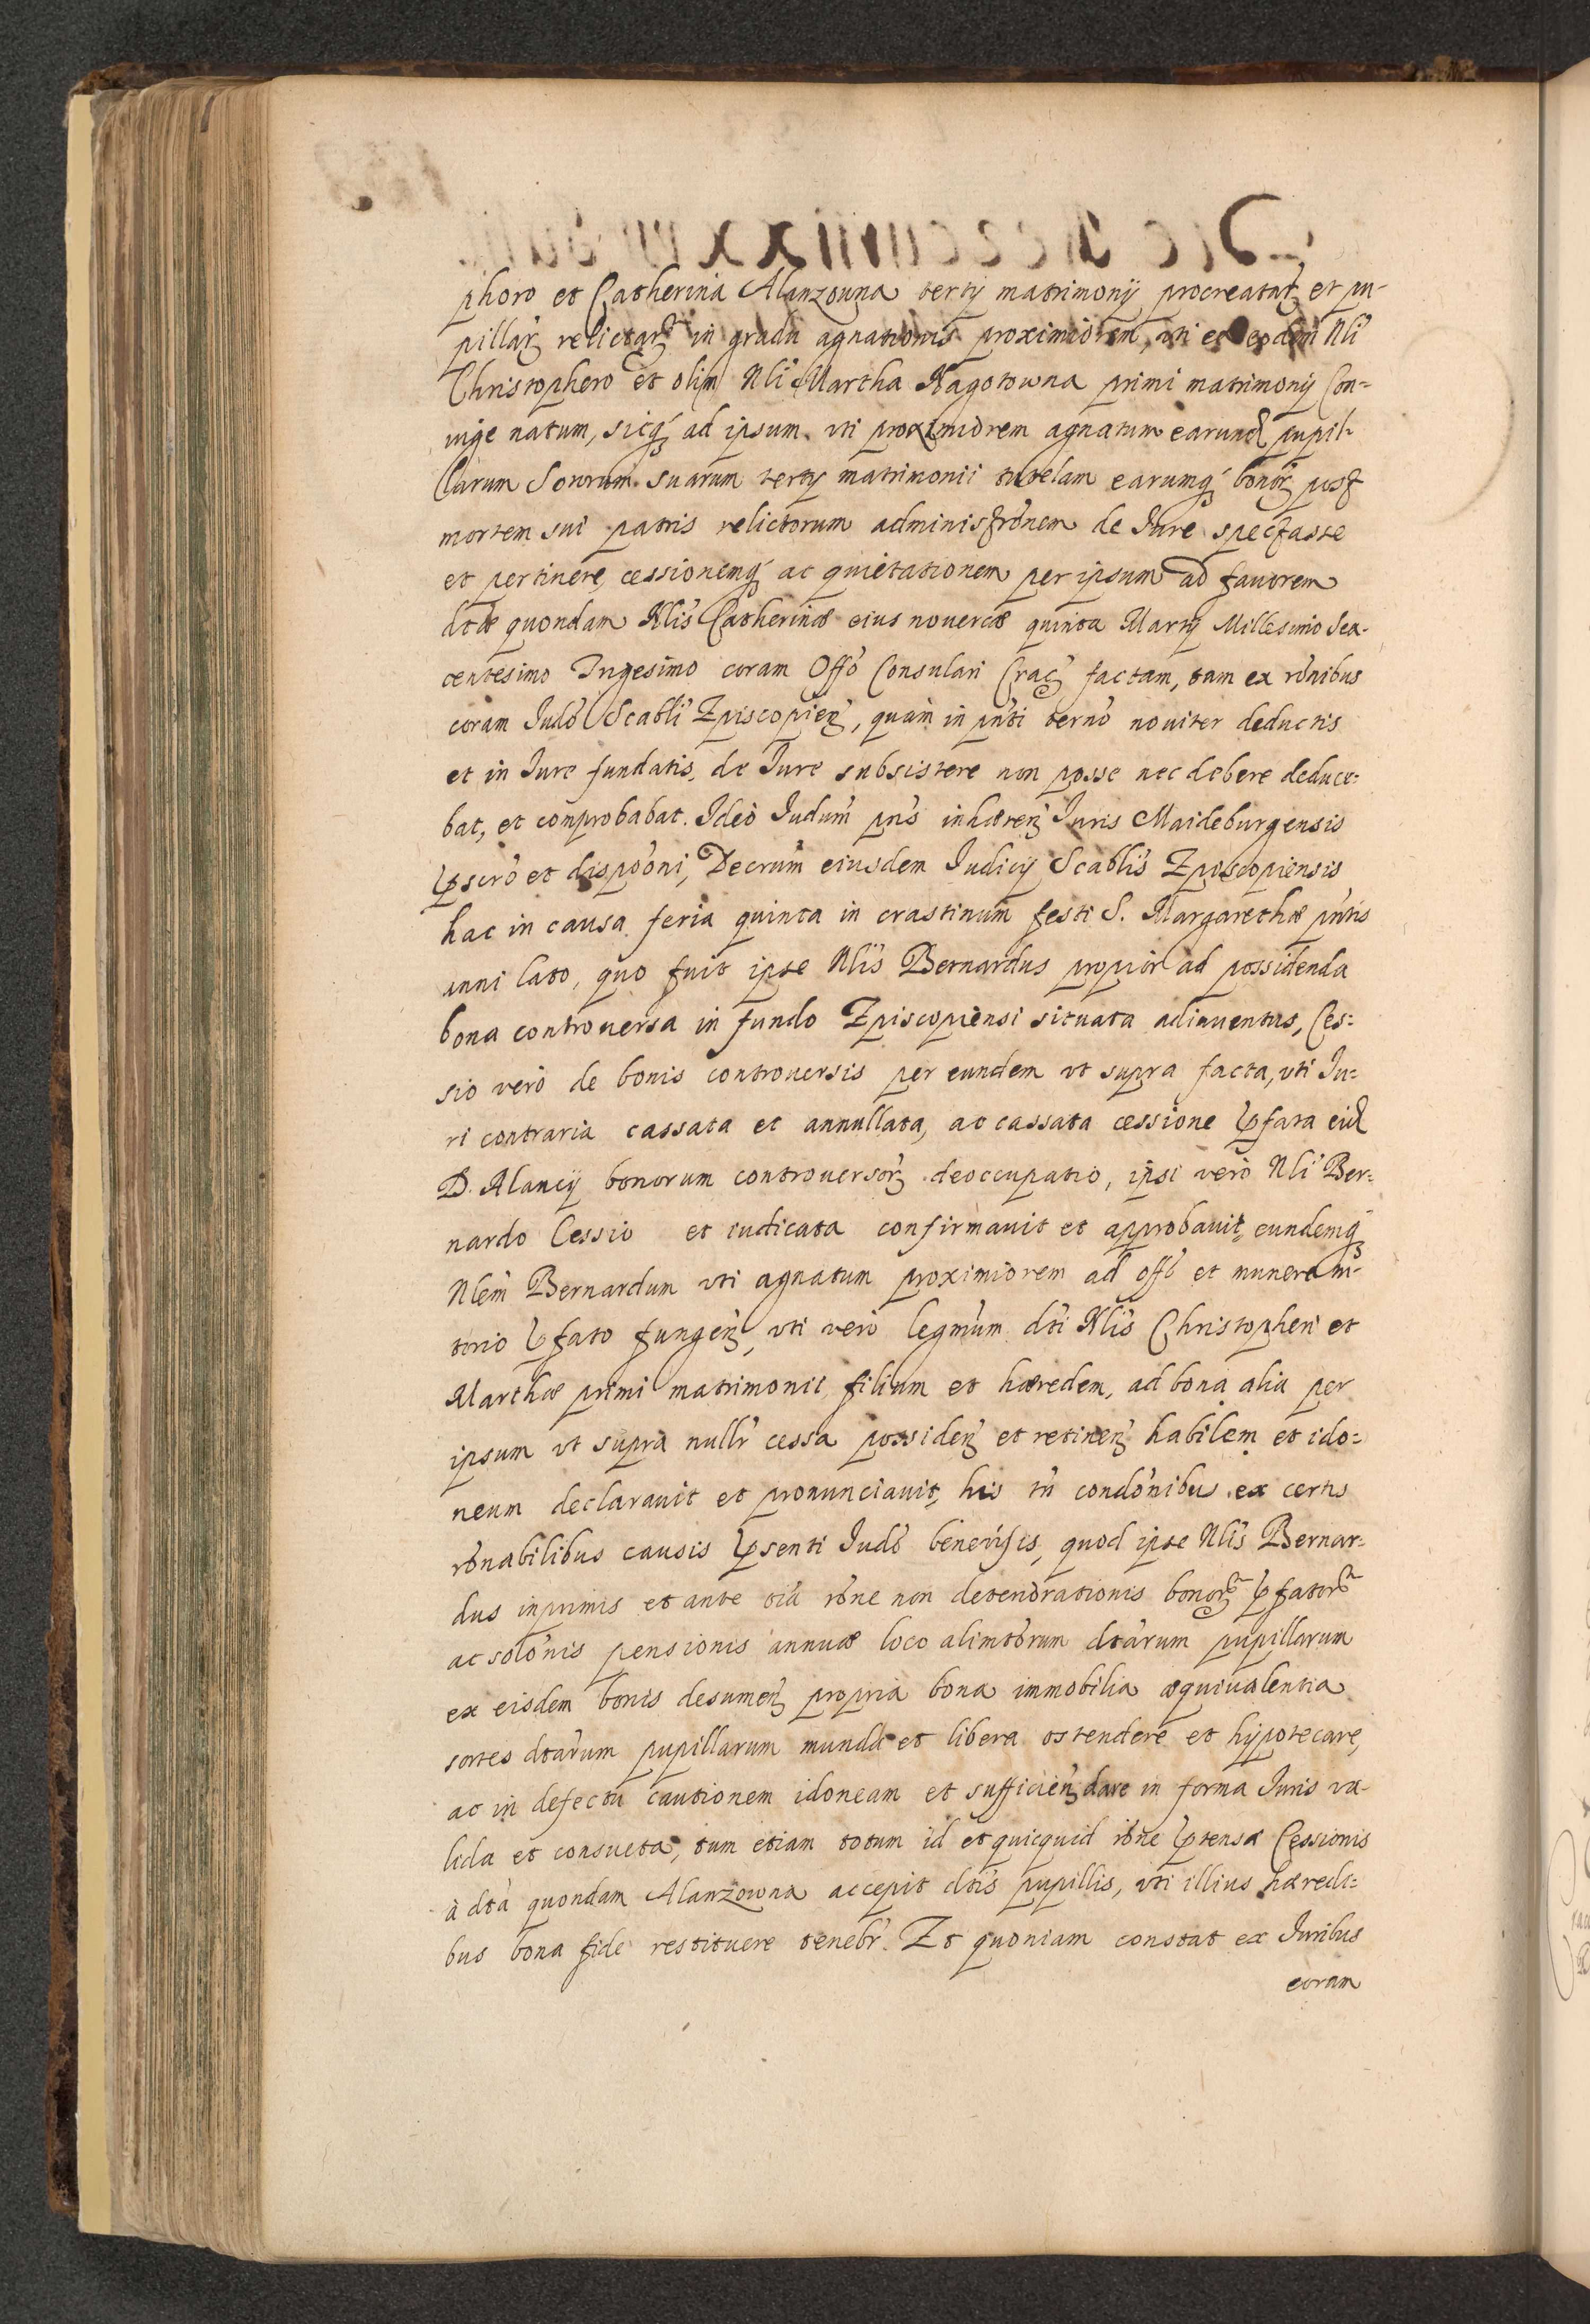 phoro et Catherina Alanzowna tertij matrimonij procreatarꝫ et pu-
pillarꝫ relictarꝫ in gradu agnationis proximiorem, uti ex eodem Nli
Christophero et olim Nli Martha Ragotowna primi matrimonij Con-
iuge natum, sicqꝫ ad ipsum uti proximiorem agnatum earund pupil-
larum Sororum suarum tertij matrimonii tutelam earumqꝫ bonorꝫ post
mortem sui patris relictorum administrõnem de Iure spectasse
et pertinere, cessionemqꝫ ac quietationem per ipsum ad fauorem
dtæ quondam Nlis Catherinæ eius nouercæ quinta Martij Millesimo Sex-
centesimo Trigesimo coram Offo Consulari Cracꝫ factam, tam ex rõnibus
coram Iudo Scabli Episcopienꝫ, quam in pnti terno nouiter deductis
et in Iure fundatis, de Iure subsistere non posse nec debere deduce-
bat, et comprobabat. Ideò Iudum pns inhærenꝫ Iuris Maideburgensis
pscro et dispooni, Decrum eiusdem Iudicij Scablis Episcopiensis
hac in causa feria quinta in crastinum festi S. Margarethæ pntis
anni lato, quo fuit ipse Nlis Bernardus propior ad possidenda
bona controuersa in fundo Episcopiensi situata adinuentus, Ces-
sio verò de bonis controuersis per eundem vt supra facta, vti Iu-
ri contraria cassata et annullata, ac cassata cessione pfata eid
D. Alancij bonorum controuersorꝫ deoccupatio, ipsi verò Nli Ber-
nardo Cessio et iudicata confirmauit et approbauit, eundemqꝫ
Nlem Bernardum vti agnatum proximiorem ad offo et munere tu-
torio pfato fungenꝫ, vti verò legmum dti Nlis Christopheri et
Marthæ primi matrimonii, filium et hæredem, ad bona alia per
ipsum vt supra nullr cessa possidenꝫ et retinenꝫ habilem et ido-
neum declarauit et pronunciauit, his tn condonibus ex certis
rõnabilibus causis psenti Iudo beneuisis, quod ipse Nlis Bernar-
dus inprimis et ante oia rõne non deteriorationis bonorꝫ pfatorꝫ
ac solonis pensionis annuæ loco alimtorum dtarum pupillarum
ex eisdem bonis desumenꝫ propria bona immobilia æquiualentia
sortes dtarum pupillarum munda et libera ostendere et hypotecare,
ac in defectu cautionem idoneam et sufficienꝫ dare in forma Iuris va-
lida et consueta, tum etiam totum id et quicquid rõne ptensæ Cessionis
à dta quondam Alanzowna accepit dtis pupillis, vti illius hæredi-
bus bona fide restituere tenebr. Et quoniam constat ex Iuribus
coram